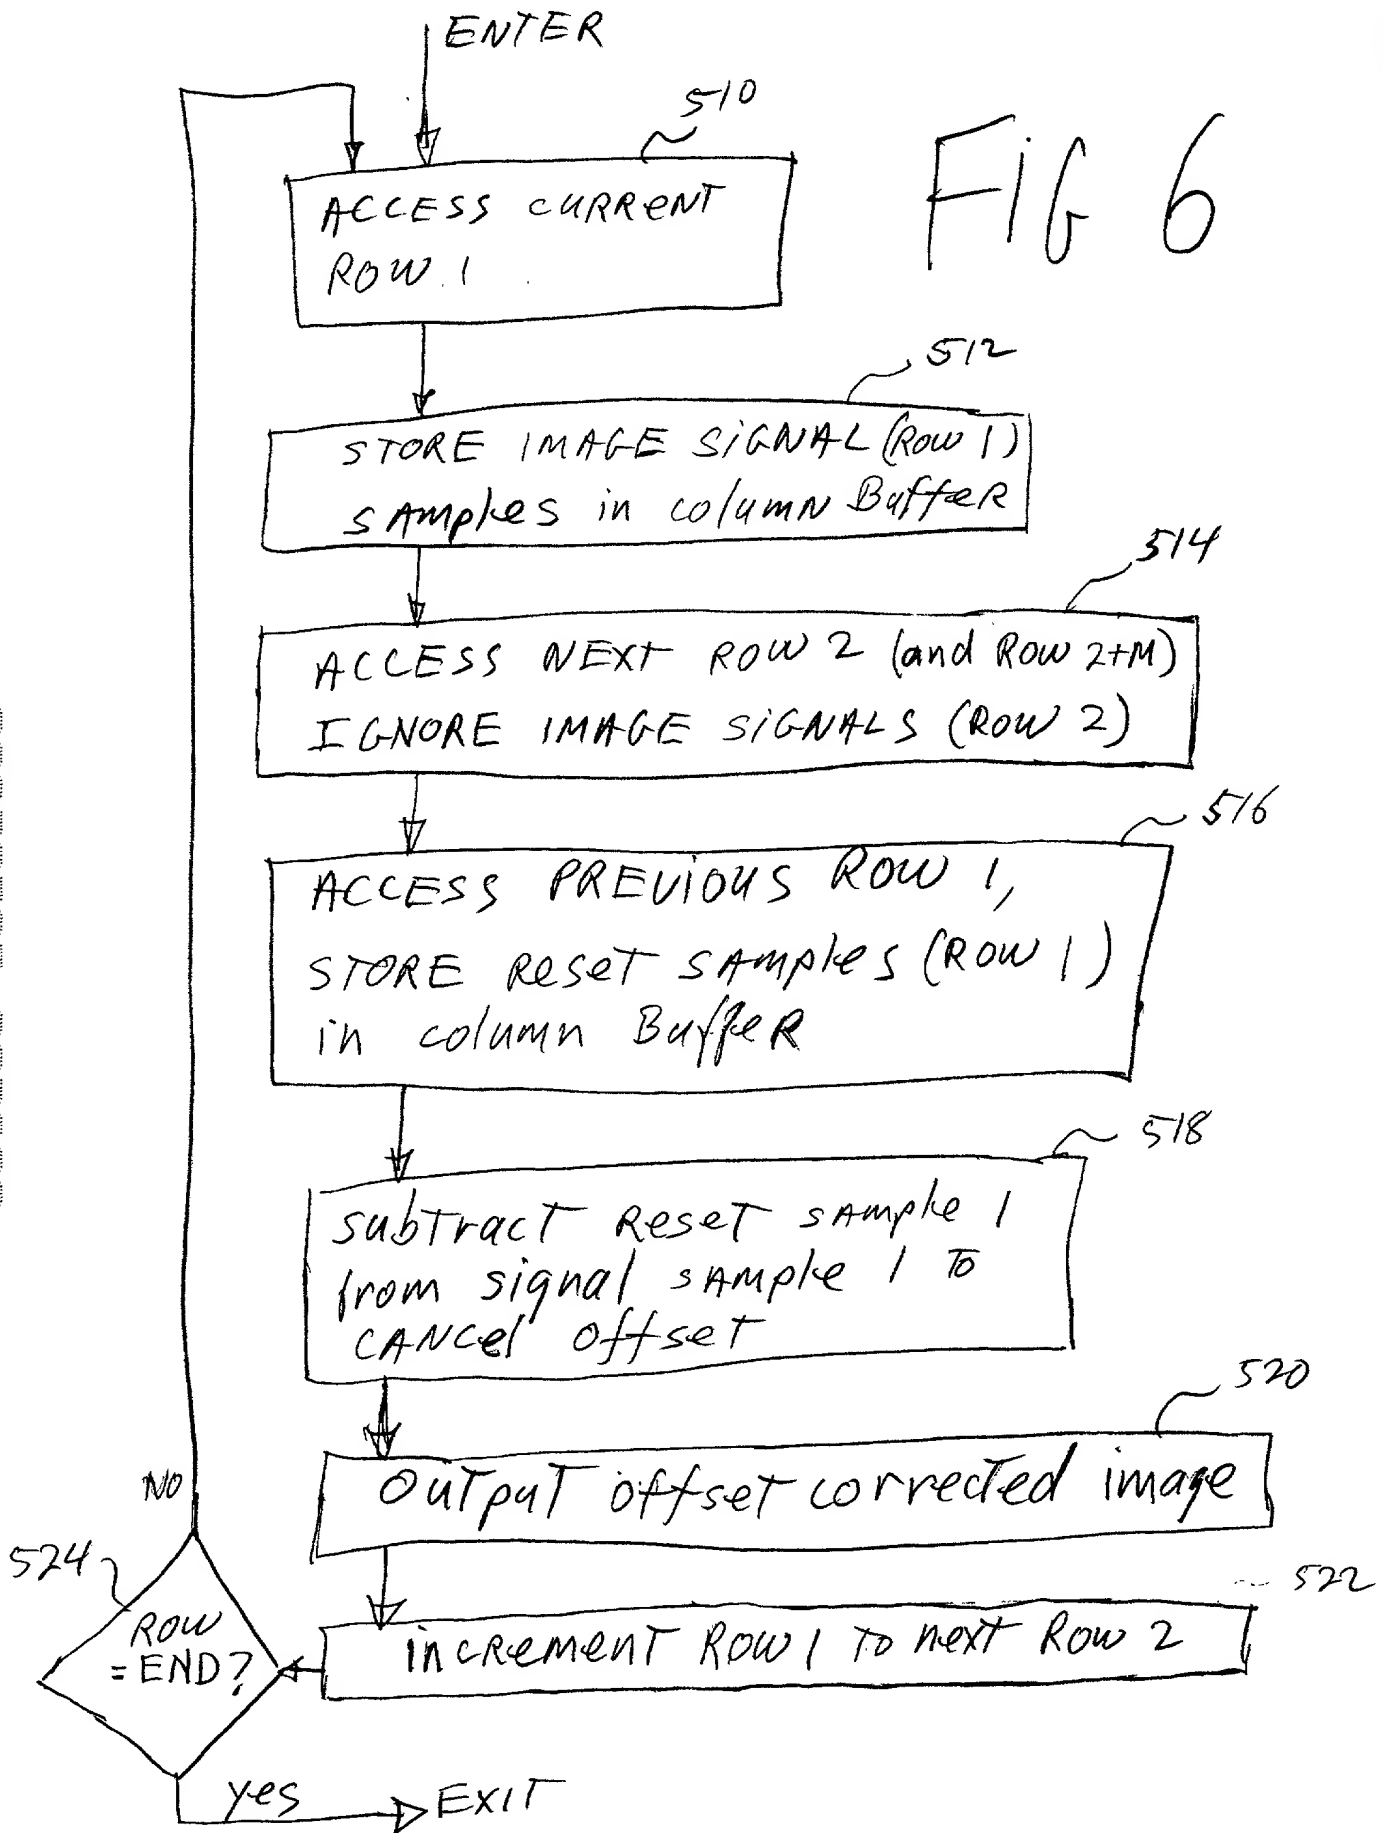 ENTER
510
FiG 6
ACCESS CURRENT
ROW 1
512
STORE IMAGE SiGNAL (ROW 1)
SAmples in column BuffeR
514
ACCESS NEXT ROW 2 (and ROW 2+M)
IGNORE IMAGE SiGNALS (ROW 2)
516
ACCESS PREViOUS ROW 1,
STORE ReseT SAmples (ROW 1)
in column BuffeR
518
SubTracT ReseT SAmple 1
from signal SAmple 1 To
CANCel OffseT
520
OuTpuT offseT correcTed image
NO
524
522
ROW
=END?
incRemenT ROW 1 To nexT ROW 2
yes
EXIT